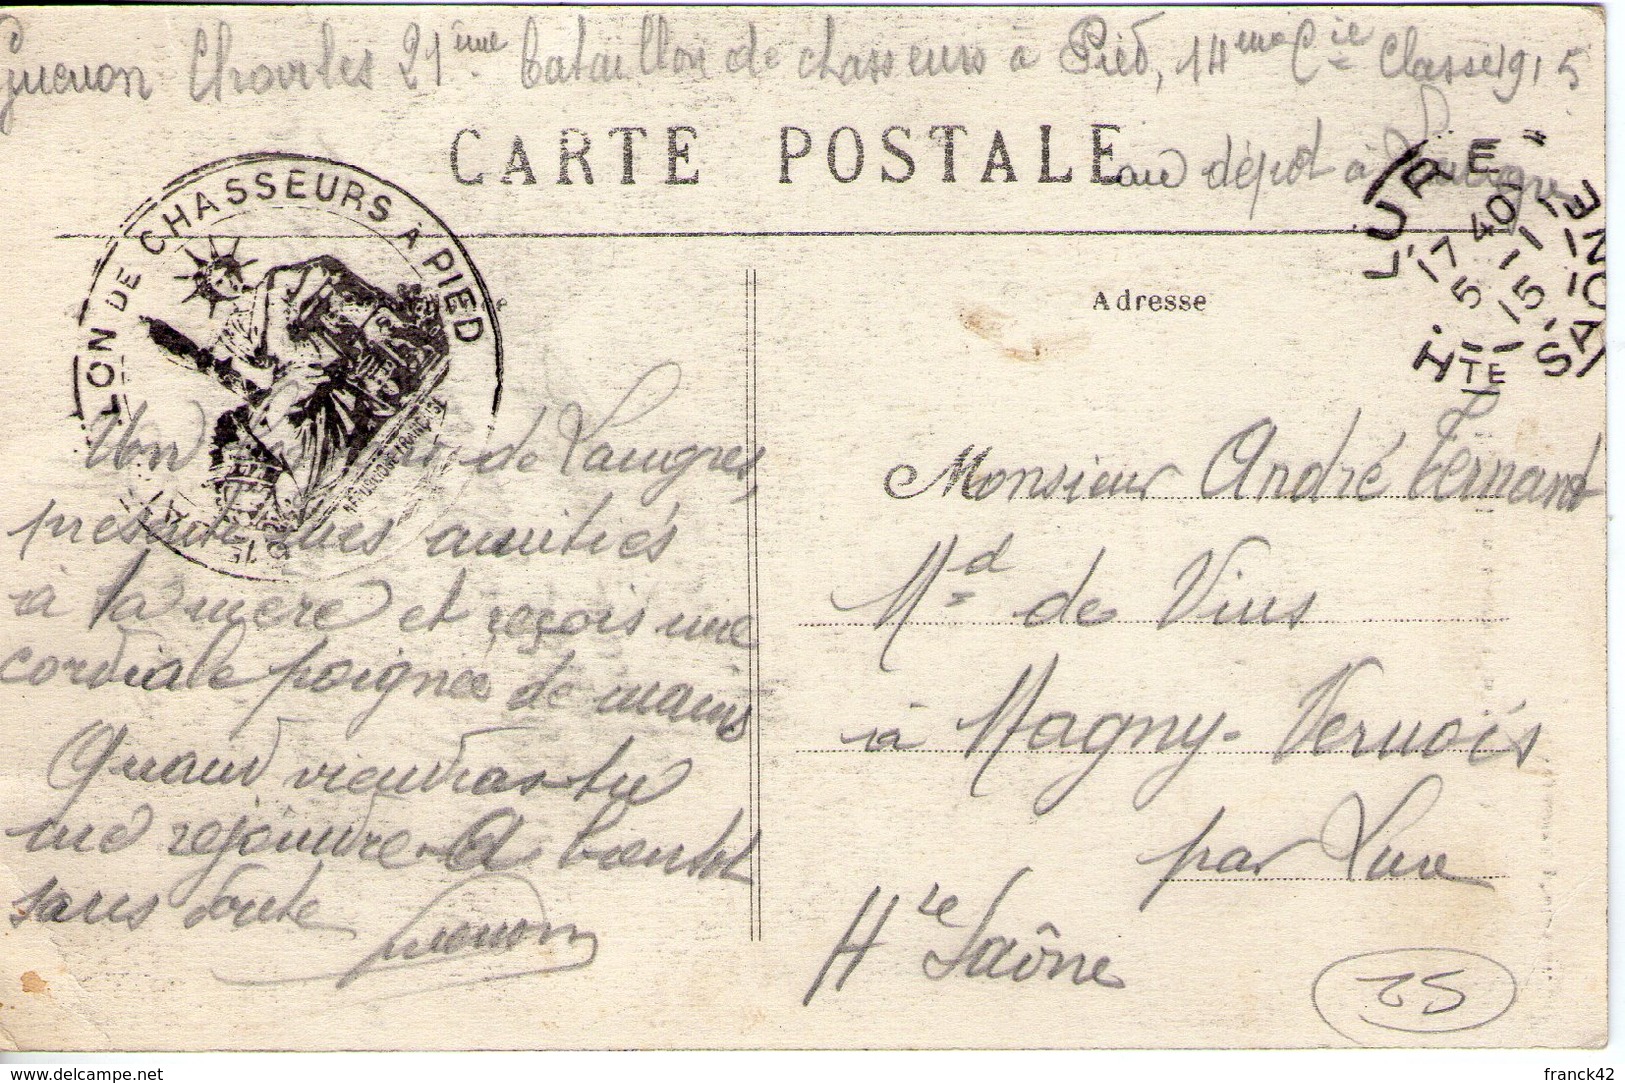 Guenon Charles 21ème bataillon de chasseurs à Pied, 14ème Cie Classe 1915
CARTE POSTALE
au dépôt à Langres
LON DE CHASSEURS À PIED
REPUBLIQUE FRANÇAISE
LURE
17 40
5 - 1
15
HTE SAÔNE
Adresse
Mon de Langres,
présente mes amitiés
à ta mère et reçois une
cordiale poignée de mains
Quand viendras-tu
me rejoindre. A bientôt
sans doute
Guenon
Monsieur André Fernand
Md de Vins
à Magny-Vernois
par Lure
Hte Saône
25
www.delcampe.net
franck42